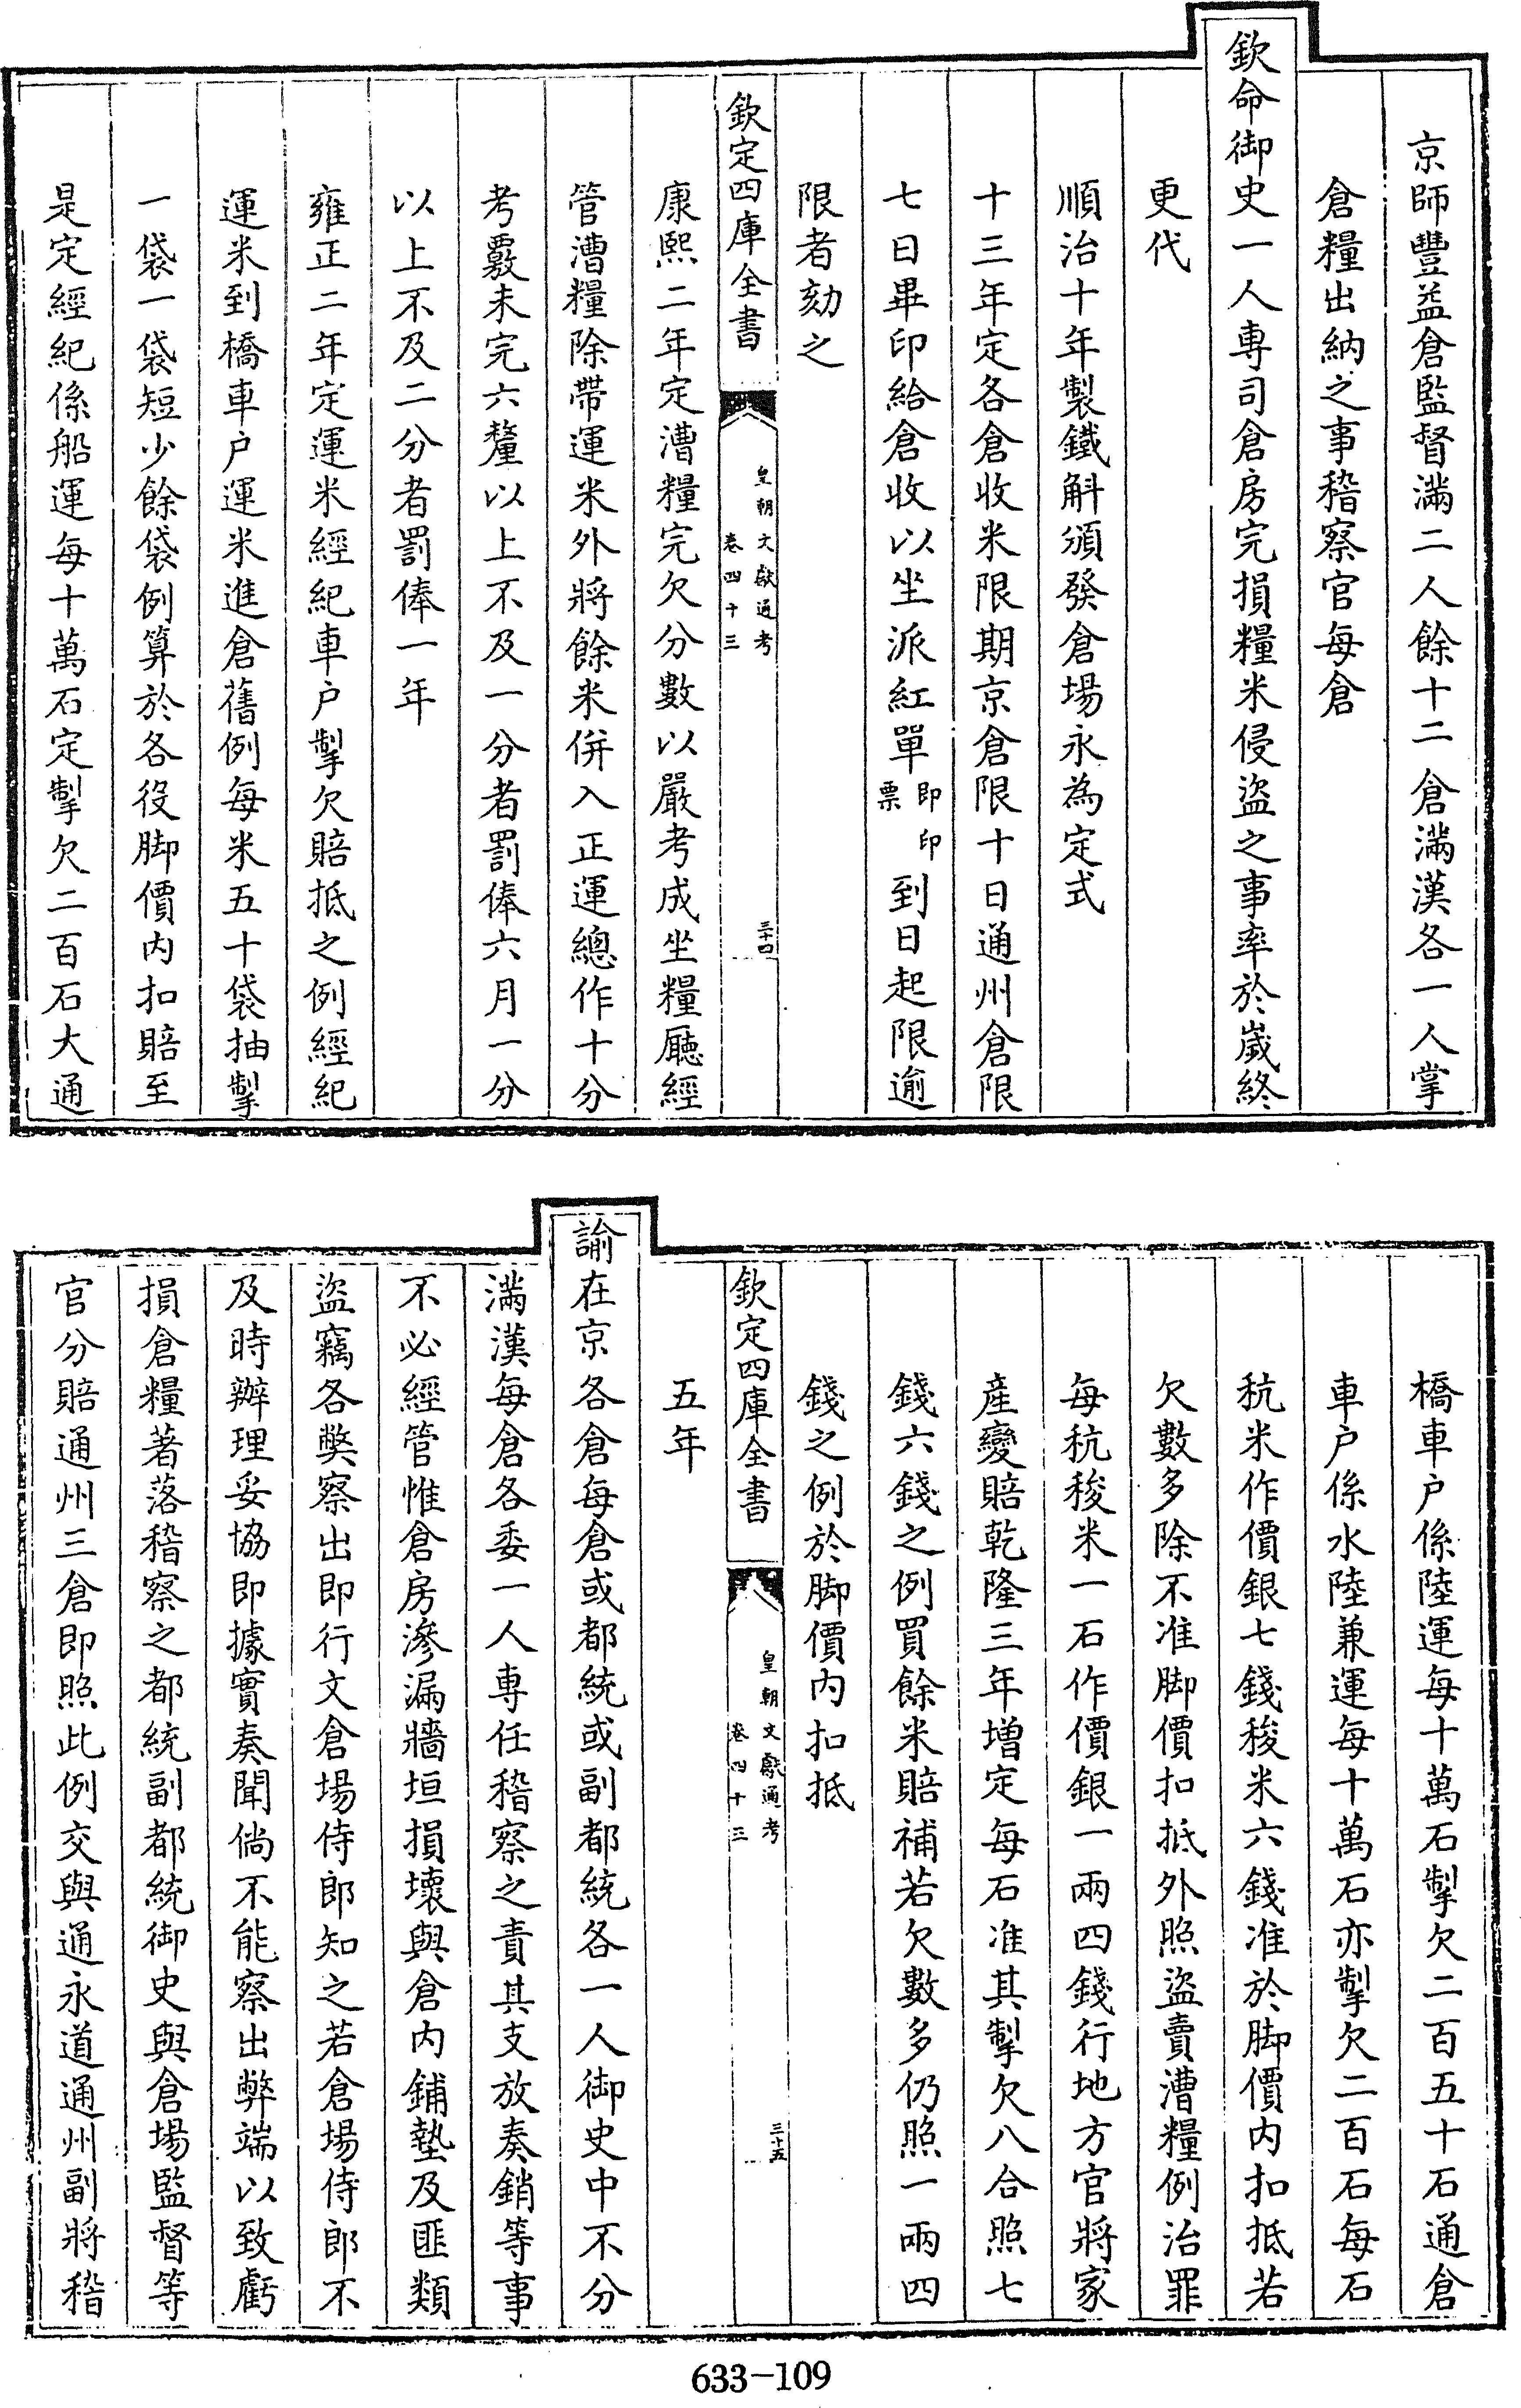 京師豐益倉監督滿二人餘十二倉滿漢各一人掌
倉糧出納之事稽察官每倉
欽命御史一人專司倉房完損糧米侵盜之事率於嵗終
更代
順治十年製鐵斛頒發倉場永為定式
十三年定各倉收米限期京倉限十日通州倉限
七日畢印給倉收以坐派紅單即印票到日起限逾
限者劾之
欽定四庫全書
皇朝文獻通考
卷四十三
三十四
康熙二年定漕糧完欠分數以嚴考成坐糧廳經
管漕糧除帶運米外將餘米併入正運總作十分
考覈未完六釐以上不及一分者罰俸六月一分
以上不及二分者罰俸一年
雍正二年定運米經紀車户掣欠賠抵之例經紀
運米到橋車户運米進倉舊例每米五十袋抽掣
一袋一袋短少餘袋例算於各役脚價内扣賠至
是定經紀係船運每十萬石定掣欠二百石大通
橋車户係陸運每十萬石掣欠二百五十石通倉
車户係水陸兼運每十萬石亦掣欠二百石每石
秔米作價銀七錢稄米六錢准於脚價内扣抵若
欠數多除不准脚價扣抵外照盜賣漕糧例治罪
每秔稄米一石作價銀一兩四錢行地方官將家
產變賠乾隆三年增定每石准其掣欠八合照七
錢六錢之例買餘米賠補若欠數多仍照一兩四
錢之例於脚價内扣抵
欽定四庫全書
皇朝文獻通考
卷四十三
三十五
五年
諭在京各倉每倉或都統或副都統各一人御史中不分
滿漢每倉各委一人專任稽察之責其支放奏銷等事
不必經管惟倉房滲漏牆垣損壞與倉内鋪墊及匪類
盜竊各獘察出即行文倉場侍郎知之若倉場侍郎不
及時辦理妥協即據實奏聞倘不能察出弊端以致虧
損倉糧著落稽察之都統副都統御史與倉場監督等
官分賠通州三倉即照此例交與通永道通州副將稽
633-109